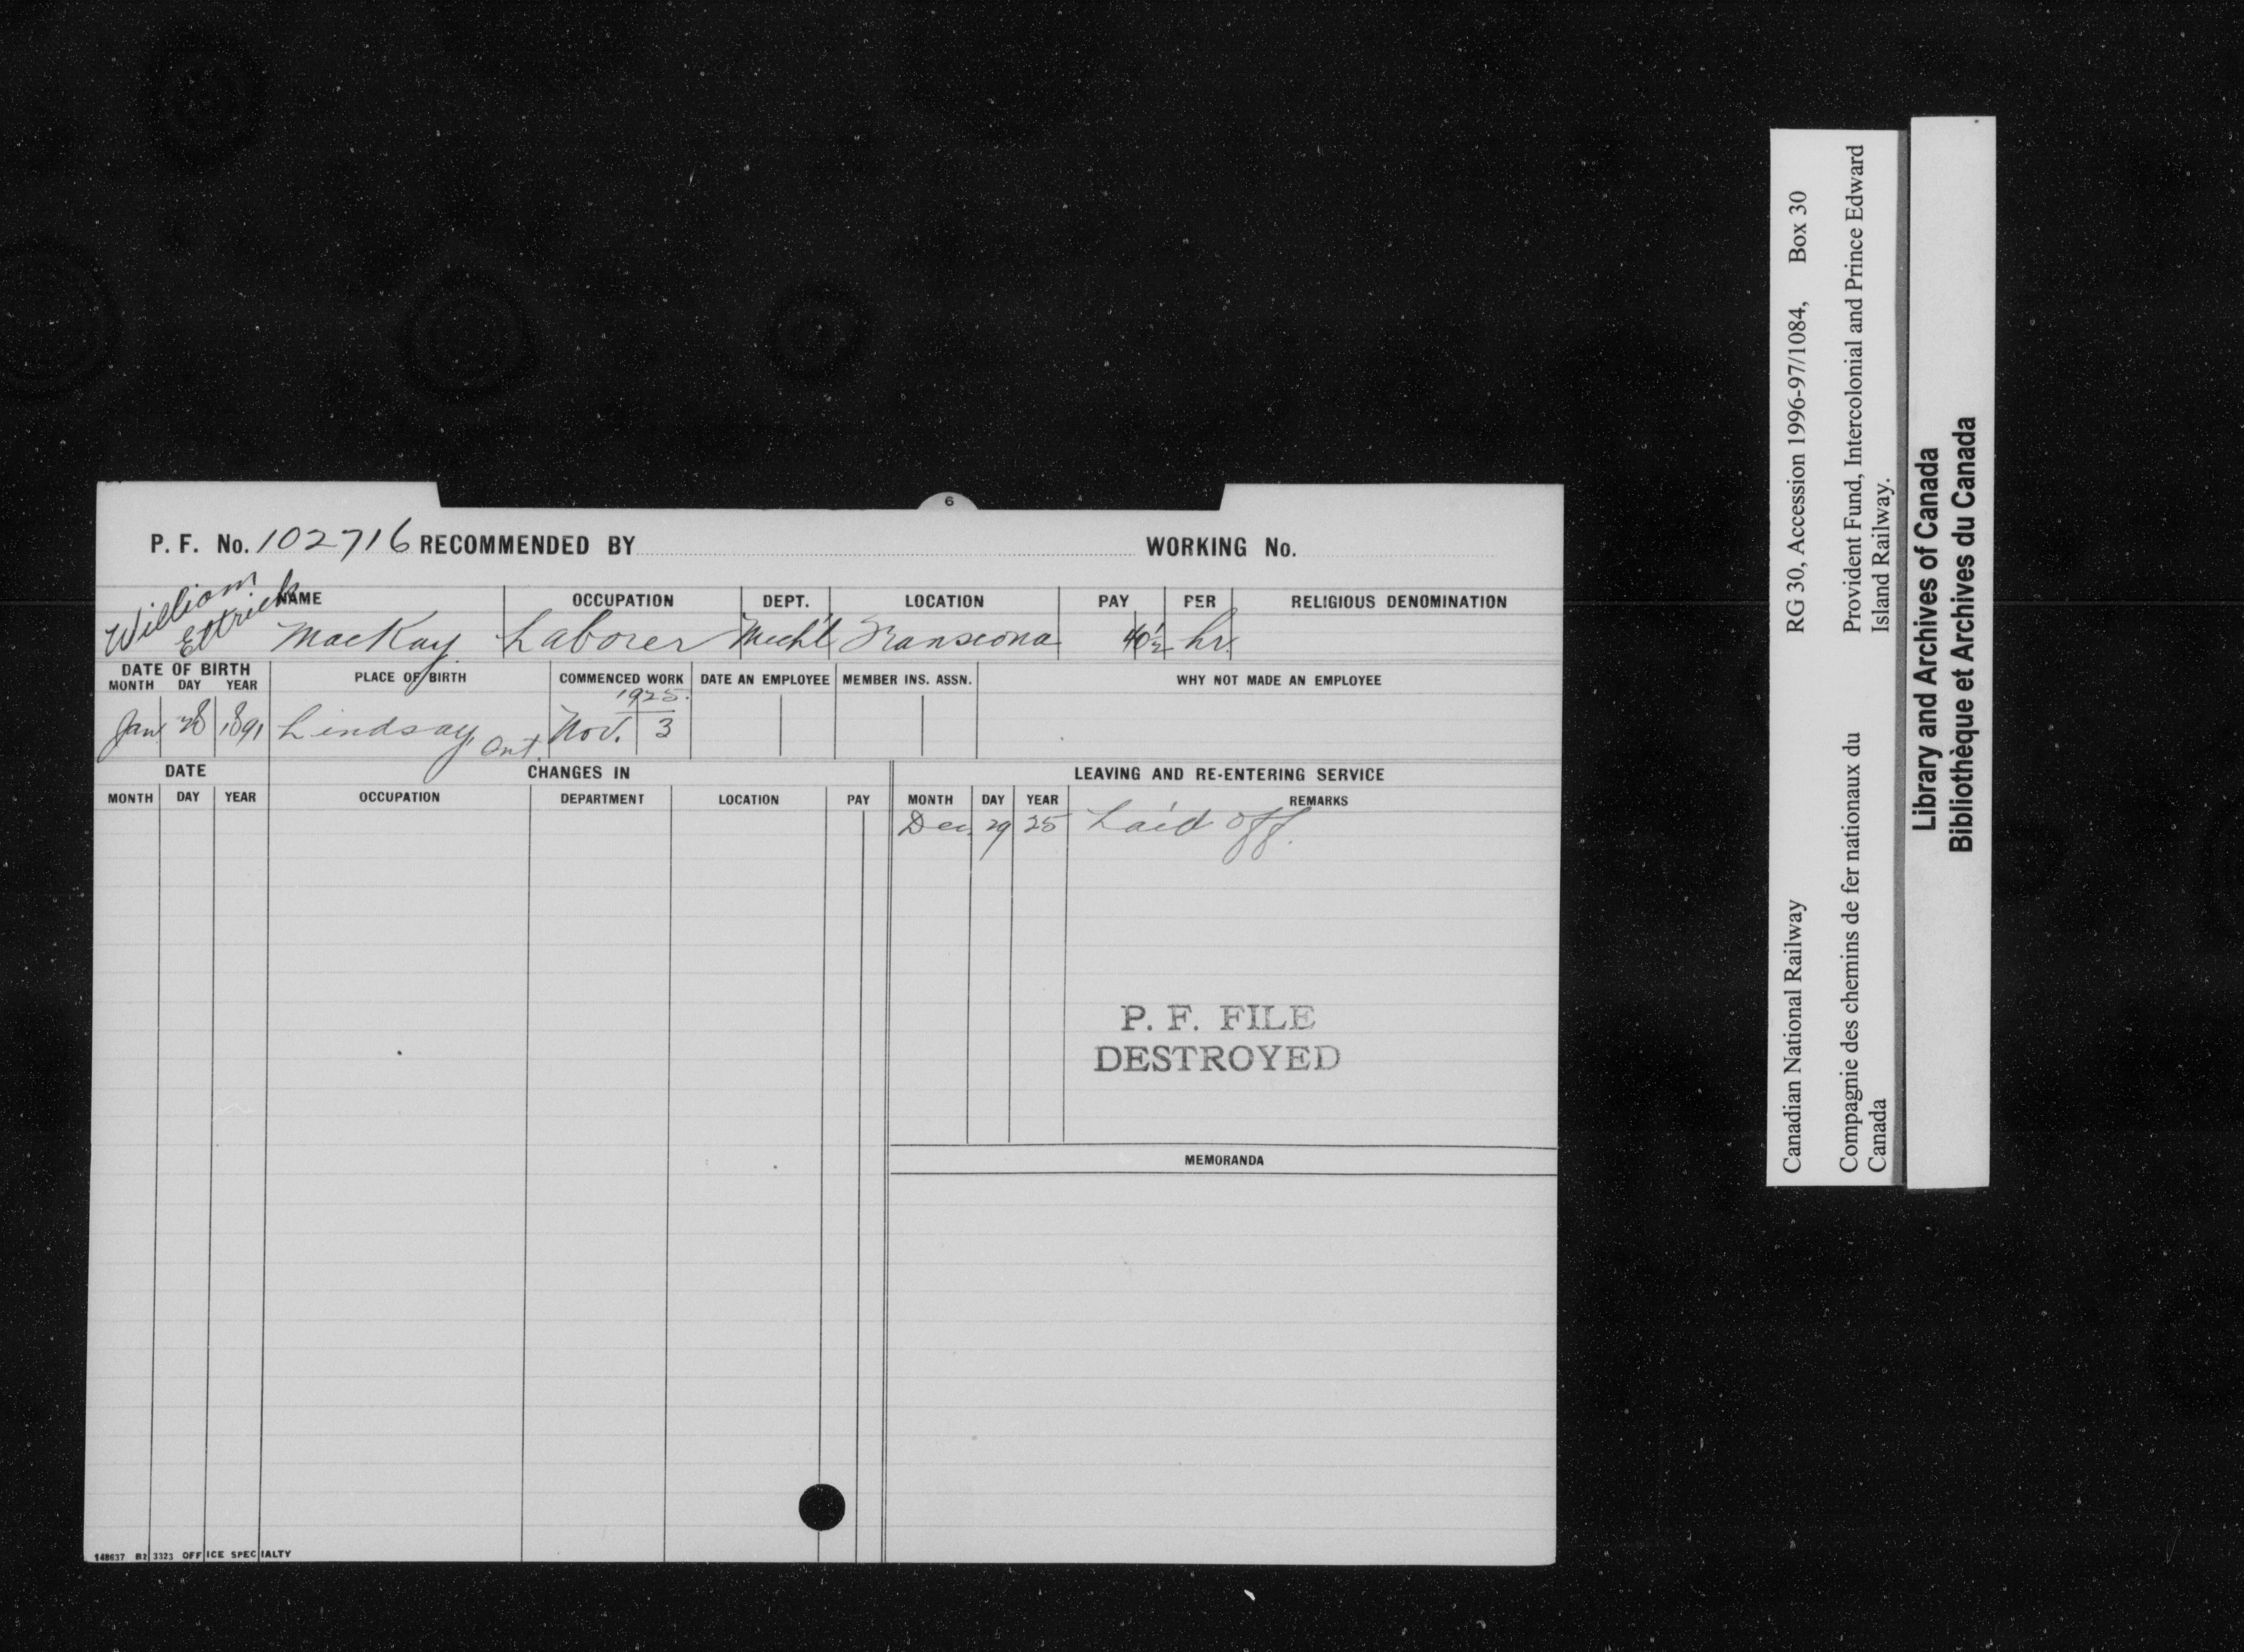 6
P. F. No. 102716 RECOMMENDED BY WORKING No.
NAME OCCUPATION DEPT. LOCATION PAY PER RELIGIOUS DENOMINATION
William Ettrick MacKay Laborer Mechl Transcona 40½ hr.
DATE OF BIRTH PLACE OF BIRTH COMMENCED WORK DATE AN EMPLOYEE MEMBER INS. ASSN. WHY NOT MADE AN EMPLOYEE
MONTH DAY YEAR
1925.
Jan 28 1891 Lindsay, Ont. Nov. 3
DATE CHANGES IN LEAVING AND RE-ENTERING SERVICE
MONTH DAY YEAR OCCUPATION DEPARTMENT LOCATION PAY MONTH DAY YEAR REMARKS
Dec. 29 25 Laid off.
P. F. FILE
DESTROYED
MEMORANDA
148637 B2 3323 OFFICE SPECIALTY
Canadian National Railway RG 30, Accession 1996-97/1084, Box 30
Compagnie des chemins de fer nationaux du Provident Fund, Intercolonial and Prince Edward
Canada Island Railway.
Library and Archives of Canada
Bibliothèque et Archives du Canada